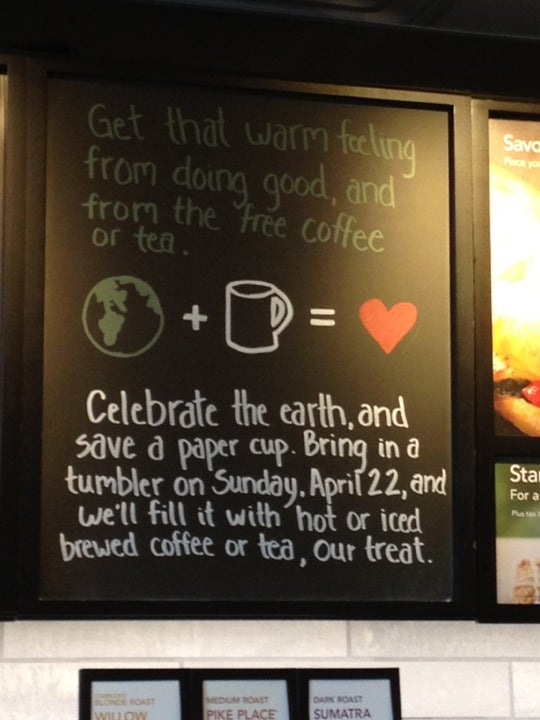 Get that warm feeling
from doing good, and
from the free coffee
or tea.
+ =
Celebrate the earth, and
save a paper cup. Bring in a
tumbler on Sunday, April 22, and
we'll fill it with hot or iced
brewed coffee or tea, our treat.
Savo
Place yo
Sta
For a
Plus tax
BLONDE ROAST
WILLOW
MEDIUM ROAST
PIKE PLACE
DARK ROAST
SUMATRA